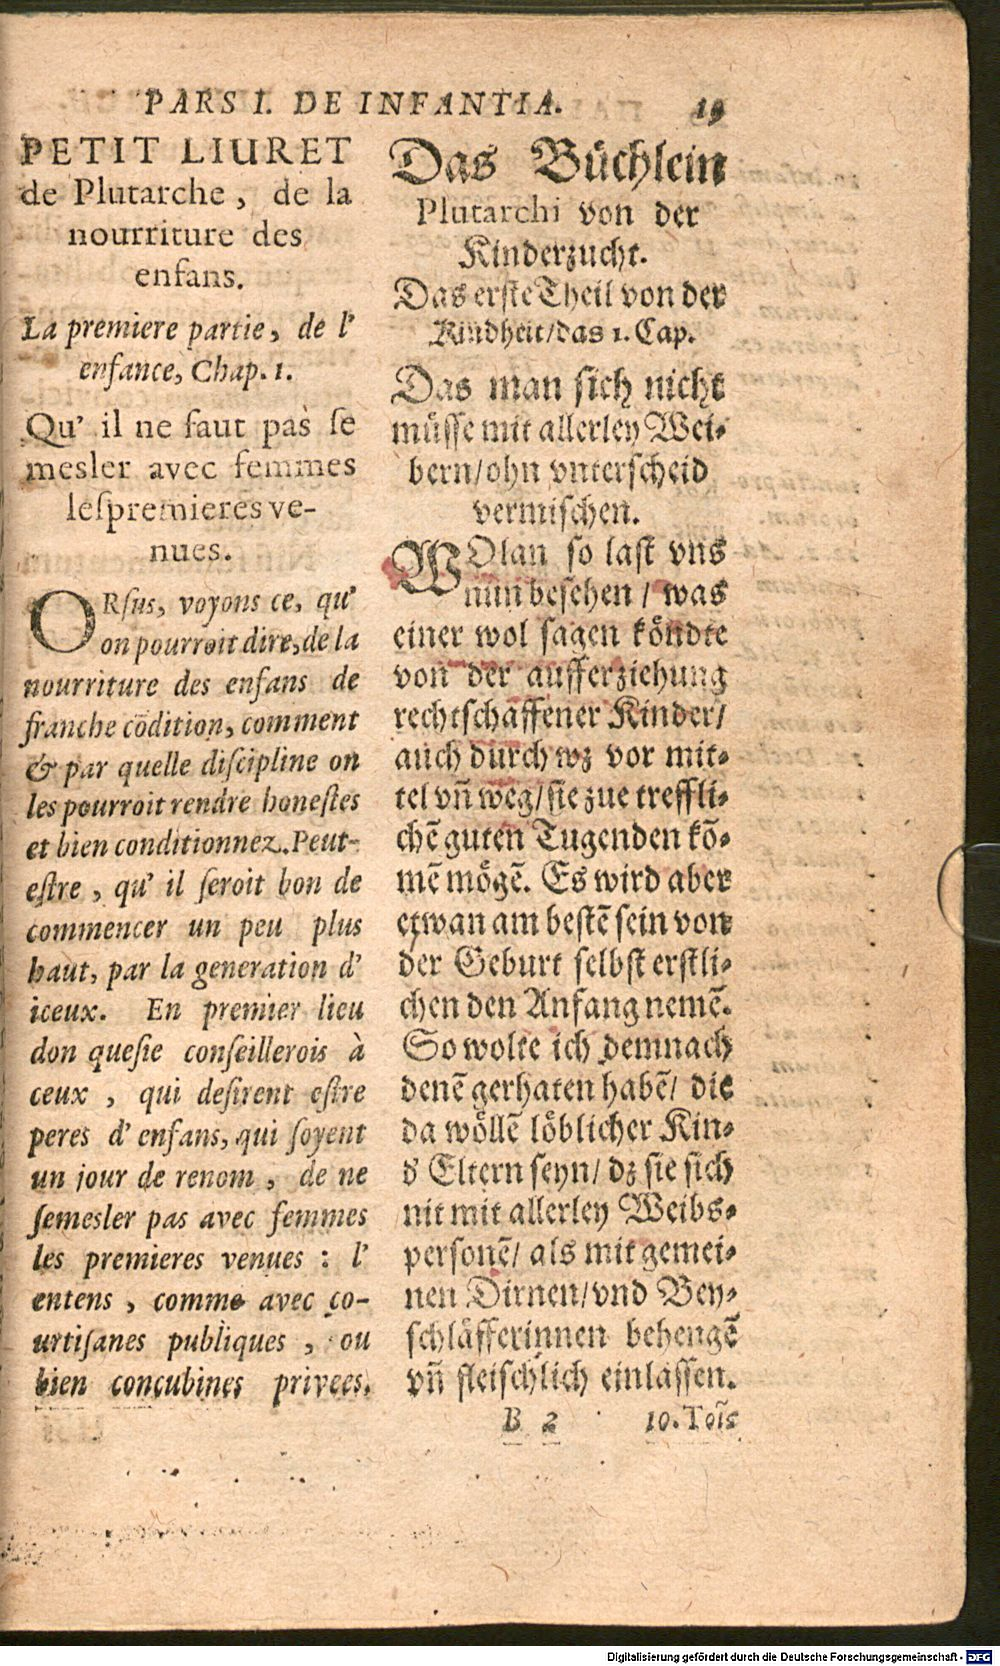 PARS I. DE INFANTIA. 19
PETIT LIURET
de Plutarche, de la
nourriture des
enfans.
La premiere partie, de l'
enfance, Chap. 1.
Qu' il ne faut pas se
mesler avec femmes
lespremieres ve-
nues.
ORsus, voyons ce, qu'
on pourroit dire, de la
nourriture des enfans de
franche cõdition, comment
& par quelle discipline on
les pourroit rendre honestes
et bien conditionnez. Peut-
estre, qu' il seroit bon de
commencer un peu plus
haut, par la generation d'
iceux. En premier lieu
don quesie conseillerois à
ceux, qui desirent estre
peres d' enfans, qui soyent
un jour de renom, de ne
semesler pas avec femmes
les premieres venues : l'
entens, comme avec co-
urtisanes publiques, ou
bien concubines privees.
Das Büchlein
Plutarchi von der
Kinderzucht.
Das erste Theil von der
Kindheit/das 1. Cap.
Das man sich nicht
müsse mit allerley Wei-
bern/ohn vnterscheid
vermischen.
WOlan so last vns
nun besehen / was
einer wol sagen köndte
von der aufferziehung
rechtschaffener Kinder/
auch durch wz vor mit-
tel vñ weg/sie zue treffli-
chẽ guten Tugenden kõ-
mẽ mögẽ. Es wird aber
etwan am bestẽ sein von
der Geburt selbst erstli-
chen den Anfang nemẽ.
So wolte ich demnach
denẽ gerhaten habẽ/ die
da wöllẽ löblicher Kin-
d' Eltern seyn/ dz sie sich
nit mit allerley Weibs-
personẽ/ als mit gemei-
nen Dirnen/vnd Bey-
schläfferinnen behengẽ
vñ fleischlich einlassen.
B 2 10. Toĩs
Digitalisierung gefördert durch die Deutsche Forschungsgemeinschaft - DFG